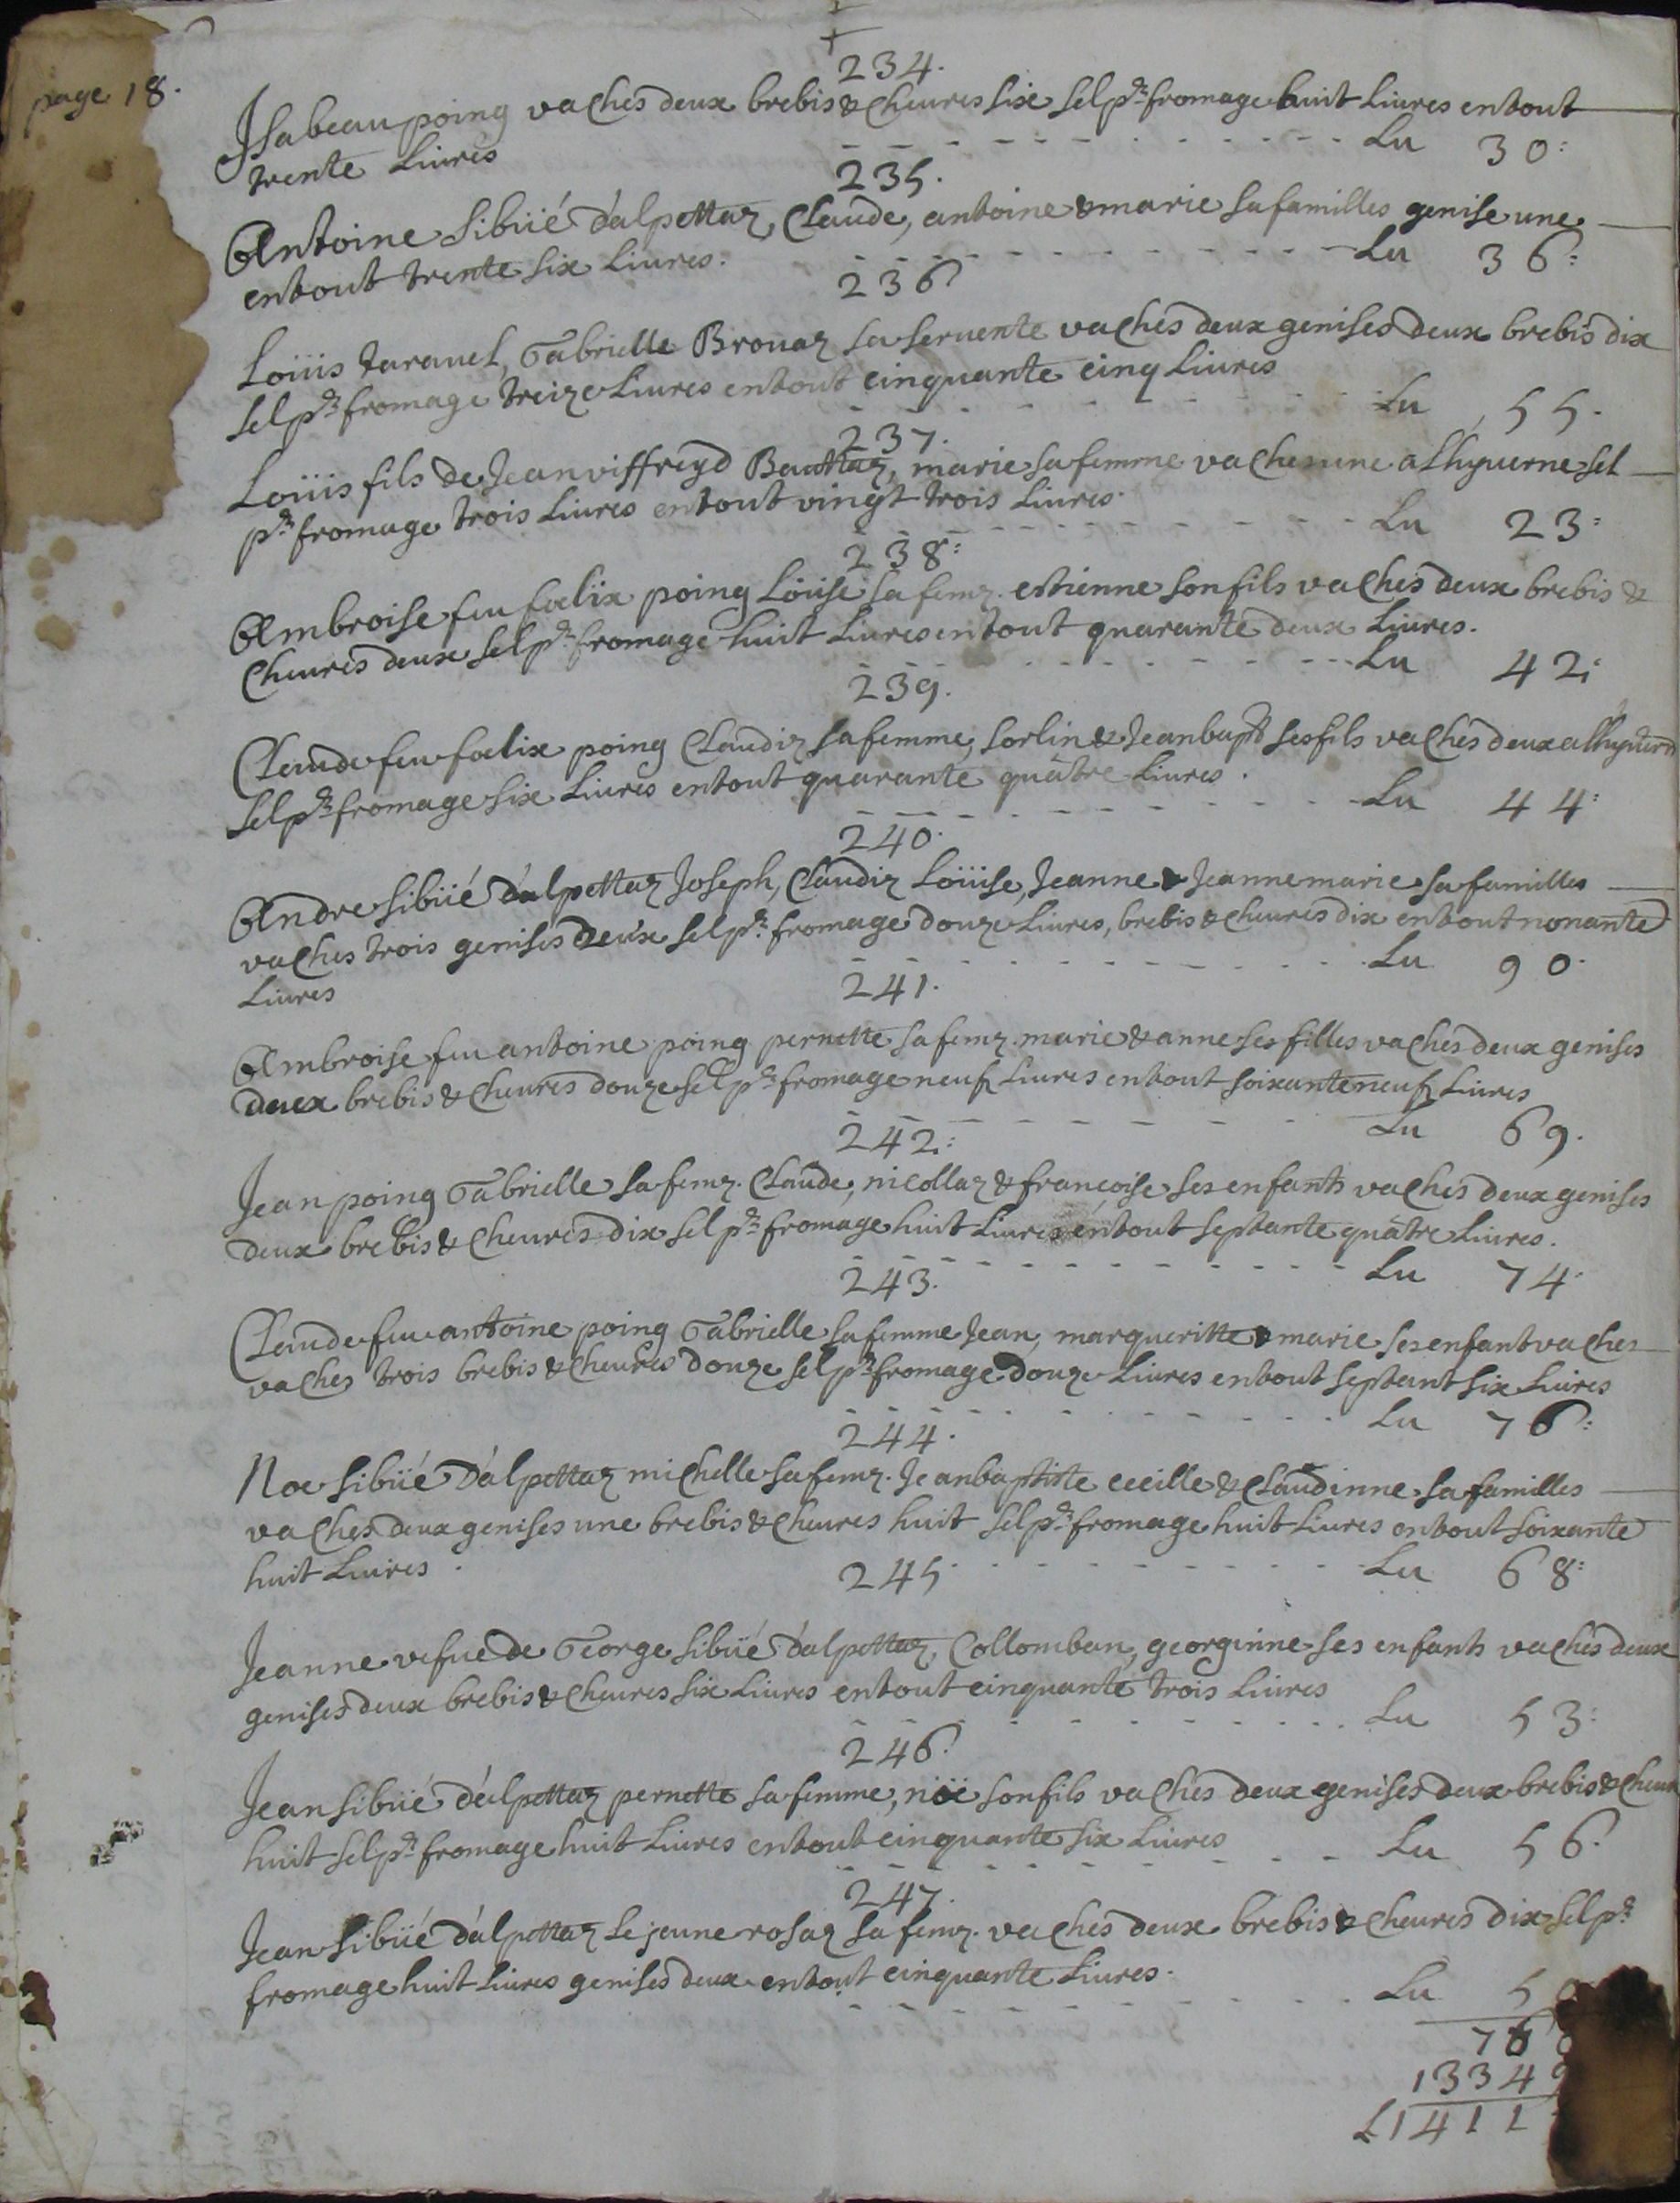 page 18.
234.
Isabeau poing vaches deux brebis & cheures six sel p.r fromage huit liures entout
trente liures Lu 30:
235.
Antoine sibüé d'alpettaz, Claude, antoine & marie sa familles genise une
entout trente six liures. Lu 36:
236
Loüis taravel, Gabrielle Brouaz sa seruente vaches deux genises deux brebis dix
sel p.r fromage treize liures entout cinquante cinq liures
Lu 55.
237.
Loüis fils de Jean viffreyd Bauttaz, marie sa femme vaches une a l'hyuerne sel
p.r fromage trois liures entout vingt trois liures.
Lu 23:
238:
Ambroise feu foelix poing Loüise sa femz. estienne son fils vaches deux brebis &
cheures deux sel p.r fromage huit liures entout quarante deux liures.
Lu 42:
239.
Claude feu foelix poing Claudiz sa femme, sorlin & Jeanbapt ses fils vaches deux a l'hyuern
sel p.r fromage six liures entout quarante quatre liures.
Lu 44:
240.
Andre sibüé d'alpettaz Joseph, Claudiz Loüise, Jeanne & Jeannemarie sa familles
vaches trois genises deux sel p.r fromage douze liures, brebis & cheures dix entout nonante
liures Lu 90.
241.
Ambroise feu antoine poing pernette sa femz. marie & anne ses filles vaches deux genises
deux brebis & cheures douze sel p.r fromage neuf liures entout soixante neuf liures
Lu 69.
242:
Jean poing Gabrielle sa femz. Claude, nicollaz & francoise ses enfants vaches deux genises
deux brebis & cheures dix sel p.r fromage huit liures entout septante quatre liures.
Lu 74.
243.
Claude feu antoine poing Gabrielle sa femme Jean, margueritte & marie ses enfant vaches
vaches trois brebis & cheures douze sel p.r fromage douze liures entout septant six liures
Lu 76:
244.
Noe sibüé d'alpettaz michelle sa femz. Jeanbaptiste cecille & Claudinne sa familles
vaches deux genises une brebis & cheures huit sel p.r fromage huit liures entout soixante
huit liures. Lu 68:
245.
Jeanne vefue de George sibüé d'alpettaz, Collomban, georginne ses enfants vaches deux
genises deux brebis & cheures six liures entout cinquante trois liures
Lu 53:
246.
Jean sibüé d'alpettaz pernette sa femme, noë son fils vaches deux genises deux brebis & cheur
huit sel p.r fromage huit liures entout cinquante six liures Lu 56.
247.
Jean sibüé d'alpettaz le jeune rosaz sa femz. vaches deux brebis & cheures dix sel p.r
fromage huit liures genises deux entout cinquante liures.
Lu 50
766
13349
L1411